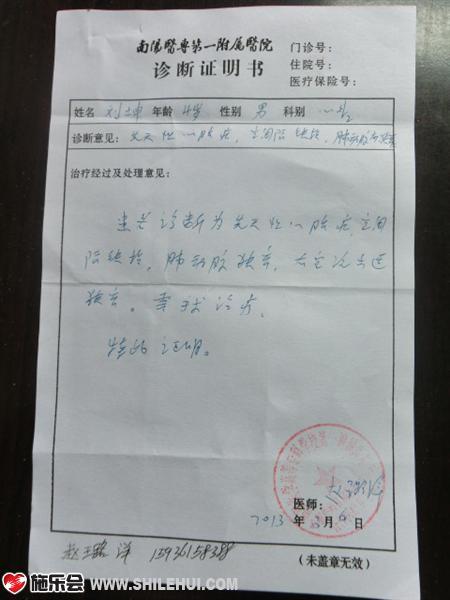 南陽醫專第一附属醫院
诊断证明书
门诊号：
住院号：
医疗保险号：
姓名 刘士坤 年龄 4岁 性别 男 科别 心外
诊断意见： 先天性心脏病，室间隔缺损，肺动脉瓣狭窄
治疗经过及处理意见：
患者诊断为先天性心脏病，室间
隔缺损，肺动脉狭窄，右室流出道
狭窄。需手术治疗。
特此证明。
医师：
2013 年 3 月 6 日
赵玉 洋 15936158388
（未盖章无效）
施乐会
WWW.SHILEHUI.COM